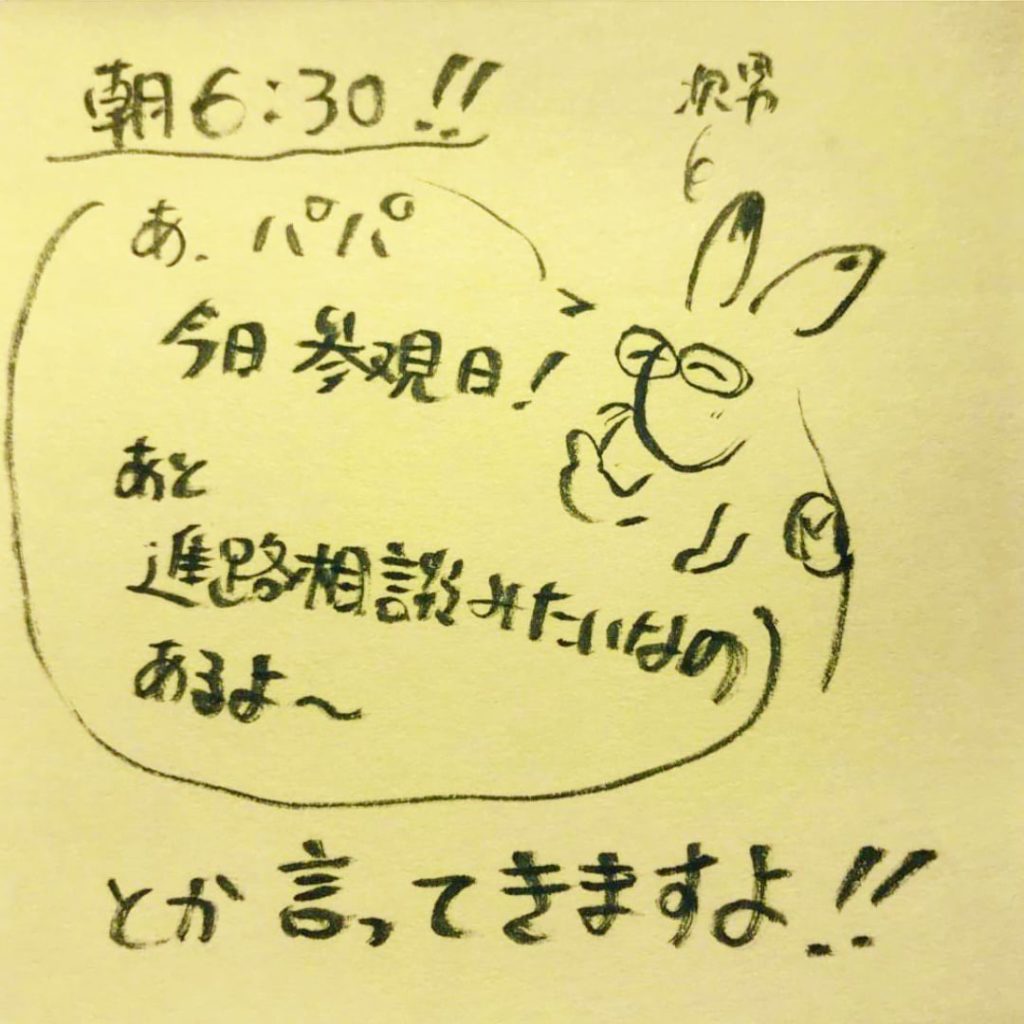 朝6:30!!
次男
あ、パパ
今日参観日!
あと
進路相談みたいなの
あるよ〜
とか言ってきますよ!!